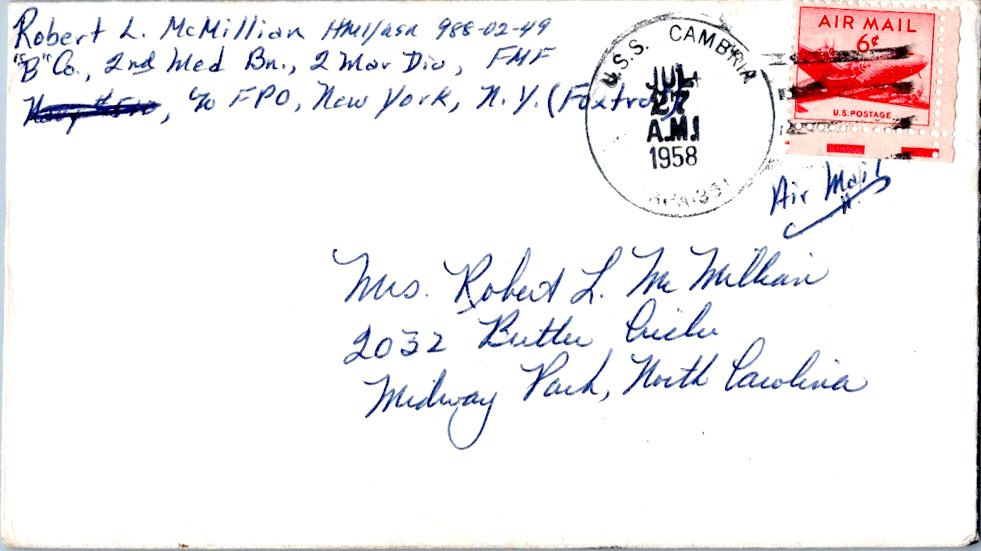 Robert L. McMillian HM1/asn 988-02-49
"B" Co., 2nd Med Bn., 2 Mar Div, FMF
c/o FPO, New York, N.Y. (Foxtrot)
U.S.S. CAMBRIA
JUL
27
A.M.
1958
AIR MAIL
6¢
U.S. POSTAGE
Air Mail
Mrs. Robert L. McMillian
2032 Butler Circle
Midway Park, North Carolina